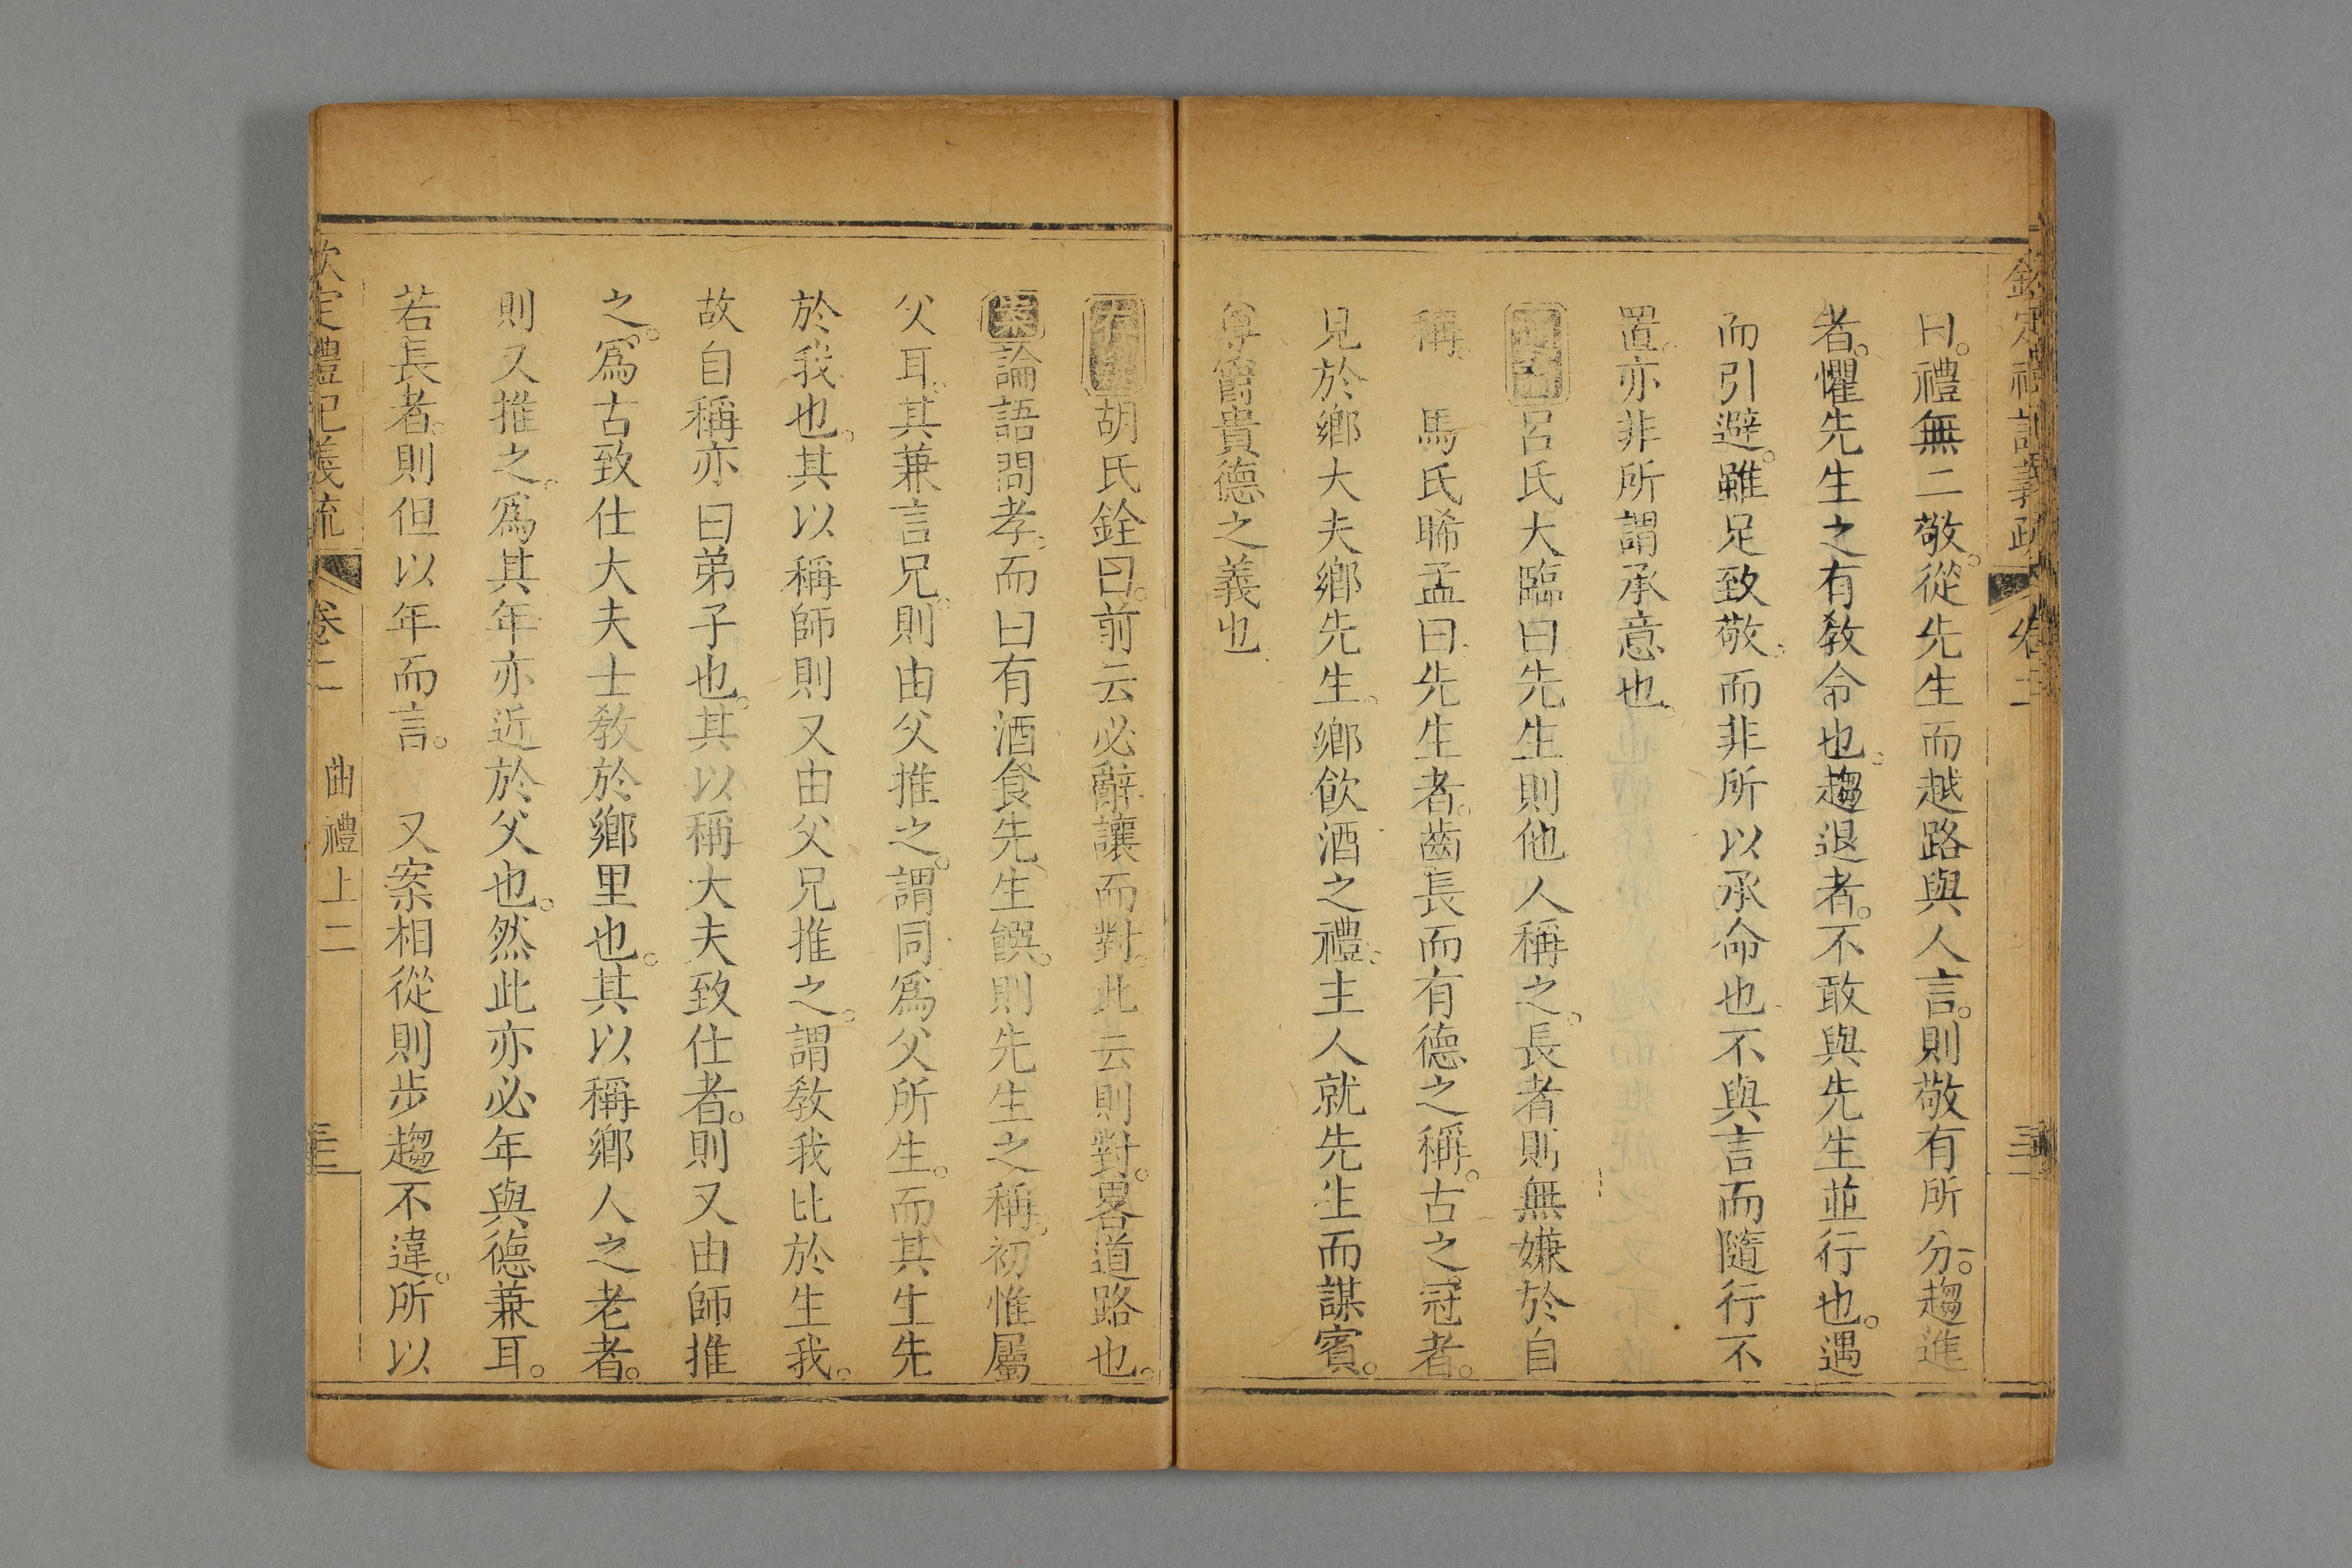 欽定禮記義疏 卷二
曰。禮無二敬。從先生而越路與人言。則敬有所分。趨進
者。懼先生之有敎令也。趨退者。不敢與先生並行也。遇
而引避。雖足致敬。而非所以承命也。不與言而隨行不
置。亦非所謂承意也。
呂氏大臨曰。先生則他人稱之。長者則無嫌於自
稱。 馬氏晞孟曰。先生者。齒長而有德之稱。古之冠者。
見於鄉大夫鄉先生。鄉飲酒之禮。主人就先生而謀賓。
尊齒貴德之義也
胡氏銓曰。前云必辭讓而對。此云則對。畧道路也。
案論語問孝。而曰有酒食先生饌。則先生之稱。初惟屬
父耳。其兼言兄。則由父推之。謂同爲父所生。而其生先
於我也。其以稱師則又由父兄推之。謂敎我比於生我。
故自稱亦曰弟子也。其以稱大夫致仕者。則又由師推
之。爲古致仕大夫士敎於鄉里也。其以稱鄉人之老者。
則又推之。爲其年亦近於父也。然此亦必年與德兼耳。
若長者。則但以年而言。 又案相從則步趨不違。所以
欽定禮記義疏 卷二 曲禮上二 三